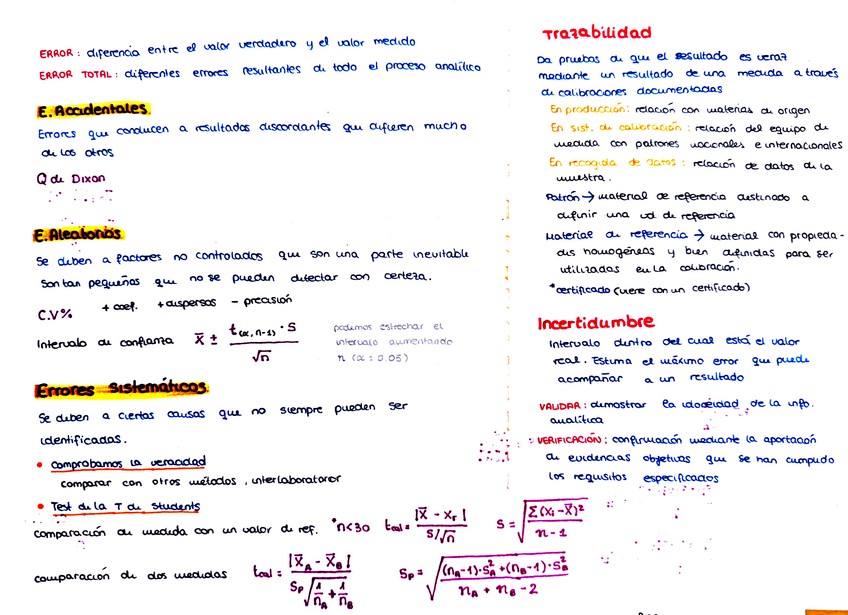 ERROR: diferencia entre el valor verdadero y el valor medido
ERROR TOTAL: diferentes errores resultantes de todo el proceso analítico
E. Accidentales
Errores que conducen a resultados discordantes que difieren mucho
de los otros
Q de Dixon
E. Aleatorios
Se deben a factores no controlados que son una parte inevitable
Son tan pequeños que no se pueden detectar con certeza.
C.V% + coef. + dispersos - precisión
Intervalo de confianza X̄ ± t(α, n-1) · S / √n
podemos estrechar el
intervalo aumentando
n (α = 0.05)
Errores Sistemáticos
Se deben a ciertas causas que no siempre pueden ser
identificadas.
• Comprobamos la veracidad
comparar con otros métodos, interlaboratoror
• Test de la T de Students
comparación de medida con un valor de ref. *n<30 tcal = |X̄ - Xr| / S/√n S = √(Σ(Xi-X̄)² / n-1)
comparación de dos medidas tcal = |X̄A - X̄B| / Sp √(1/nA + 1/nB) Sp = √((nA-1)·S²A + (nB-1)·S²B / nA + nB - 2)
Trazabilidad
Da pruebas de que el resultado es veraz
mediante un resultado de una medida a través
de calibraciones documentadas
En producción: relación con materias de origen
En sist. de calibración: relación del equipo de
medida con patrones nacionales e internacionales
En recogida de datos: relación de datos de la
muestra.
Patrón → material de referencia destinado a
definir una ud de referencia
Material de referencia → material con propieda-
des homogéneas y bien definidas para ser
utilizadas en la calibración.
*certificado (viene con un certificado)
Incertidumbre
Intervalo dentro del cual está el valor
real. Estima el máximo error que puede
acompañar a un resultado
VALIDAR: demostrar la idoneidad de la info.
analítica
VERIFICACIÓN: confirmación mediante la aportación
de evidencias objetivas que se han cumplido
los requisitos especificados